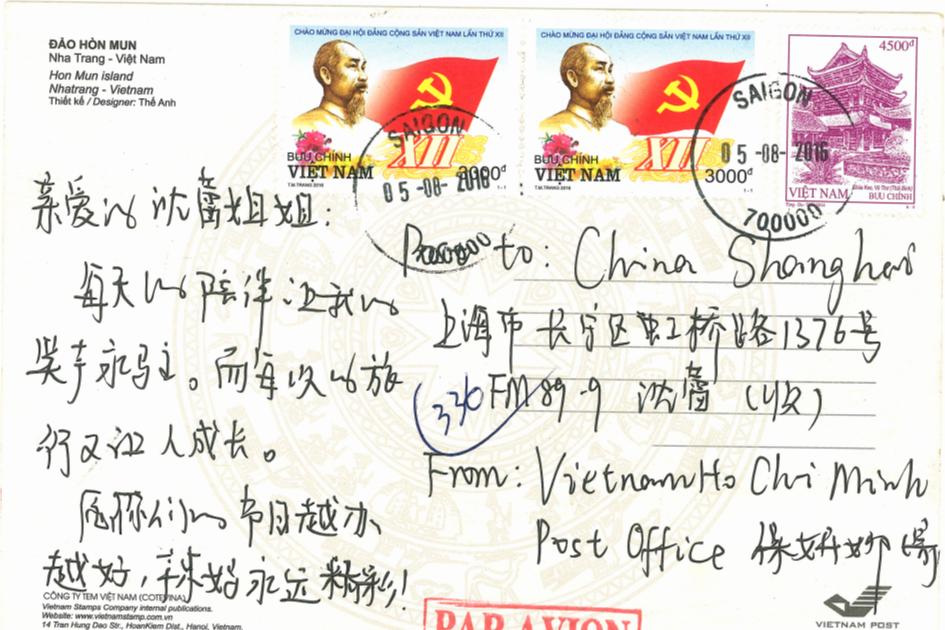 ĐẢO HÒN MUN
Nha Trang - Việt Nam
Hon Mun island
Nhatrang - Vietnam
Thiết kế / Designer: Thế Anh
CHÀO MỪNG ĐẠI HỘI ĐẢNG CỘNG SẢN VIỆT NAM LẦN THỨ XII
XII
BƯU CHÍNH
VIỆT NAM
3000đ
CHÀO MỪNG ĐẠI HỘI ĐẢNG CỘNG SẢN VIỆT NAM LẦN THỨ XII
XII
BƯU CHÍNH
VIỆT NAM
3000đ
4500đ
VIỆT NAM
BƯU CHÍNH
SAIGON
05-08-2016
SAIGON
05-08-2016
700000
亲爱的沈蕾姐姐：
每天的陪伴让我的
笑声永驻。而每次的旅
行又让人成长。
愿你们的节目越办
越好，永远精彩！
to: China Shanghai
上海市长宁区虹桥路1376号
330
FM 89.9 沈蕾（收）
From: Vietnam Ho Chi Minh
Post Office
CÔNG TY TEM VIỆT NAM (COTEVINA)
Vietnam Stamps Company internal publications.
Website: www.vietnamstamp.com.vn
14 Tran Hung Dao Str., HoanKiem Dist., Hanoi, Vietnam.
PAR AVION
VIETNAM POST